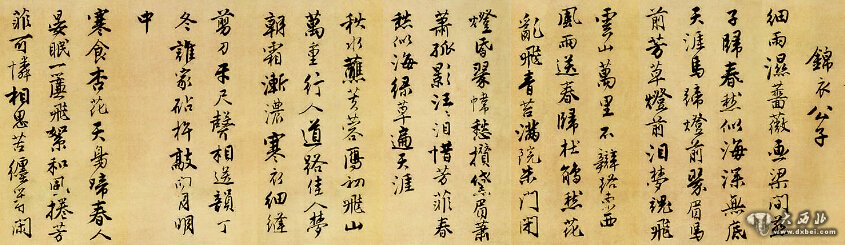 錦衣公子
細雨濕薔薇畫梁間燕
子歸春愁似海深無底
天涯馬蹄燈前翠眉馬
前芳草燈前淚夢魂飛
雲山萬里不辨路東西
風雨送春歸杜鵑愁花
亂飛青苔滿院朱門閉
燈昏翠幃愁攢黛眉蕭
蕭孤影汪汪淚惜芳菲春
愁似海綠草遍天涯
秋水蘸芙蓉雁初飛山
萬重行人道路佳人夢
朝霜漸濃寒衣細縫
剪刀牙尺聲相送韻丁
冬誰家砧杵敲向月明
中
寒食杏花天鳥啼春人
晏眠一簾飛絮和風捲芳
菲可憐相思苦纏等閑
大西北
www.dxbei.com